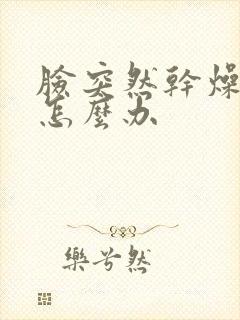 臉突然幹燥
怎麼办
樂兮然